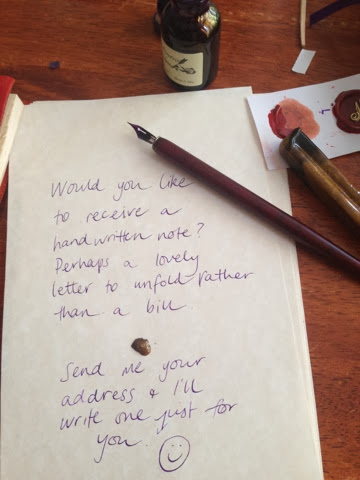 Would you like
to receive a
handwritten note?
Perhaps a lovely
letter to unfold rather
than a bill.
Send me your
address & I'll
write one just for
you.